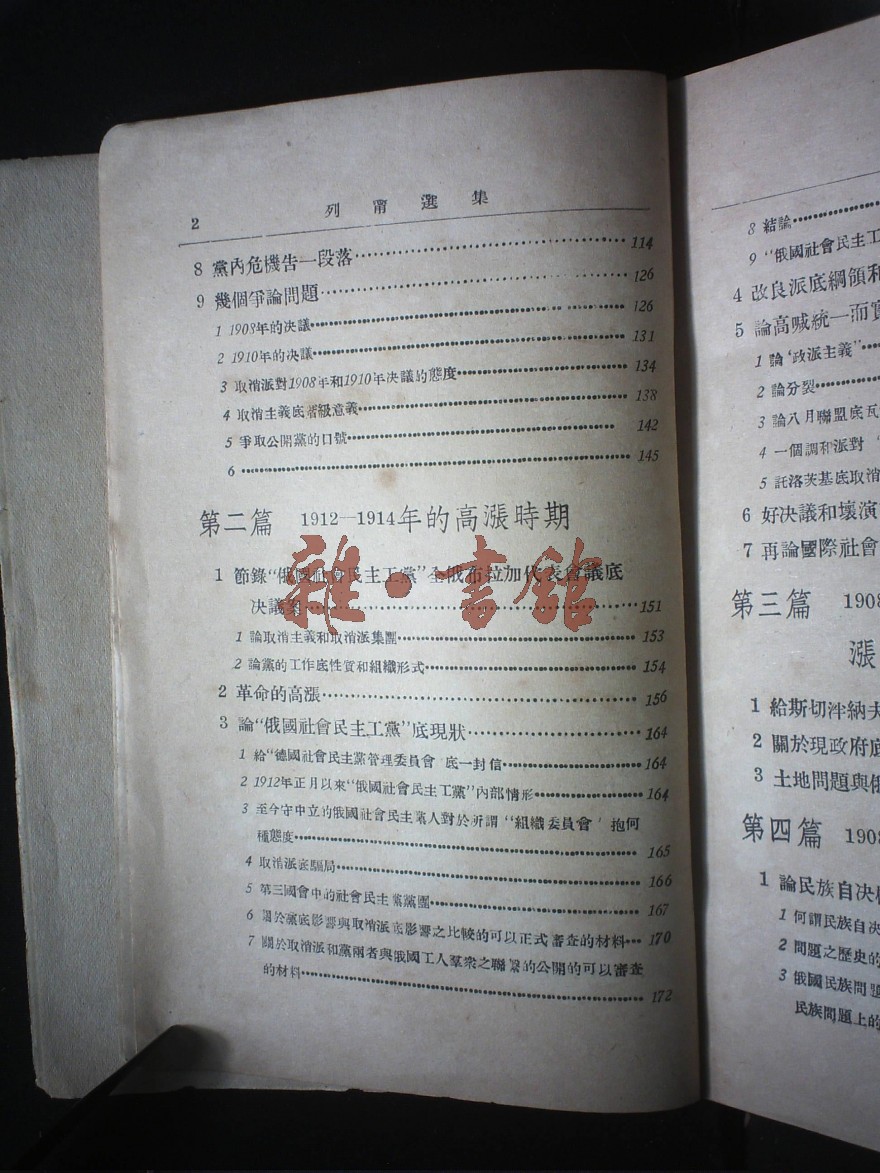 2
列甯選集
8 黨內危機告一段落……114
9 幾個爭論問題……126
1 1908年的决議……126
2 1910年的决議……131
3 取消派對1908年和1910年决議的態度……134
4 取消主義底階級意義……138
5 爭取公開黨的口號……142
6……145
第二篇 1912—1914年的高漲時期
1 節錄“俄國社會民主工黨”全俄布拉加代表會議底
决議案……151
1 論取消主義和取消派集團……153
2 論黨的工作底性質和組織形式……154
2 革命的高漲……156
3 論“俄國社會民主工黨”底現狀……164
1 給“德國社會民主黨管理委員會 底一封信……164
2 1912年正月以來“俄國社會民主工黨”內部情形……164
3 至今守中立的俄國社會民主黨人對於所謂“組織委員會’抱何
種態度……165
4 取消派底騙局……166
5 第三國會中的社會民主黨黨團……167
6 關於黨底影響與取消派底影響之比較的可以正式審查的材料…170
7 關於取消派和黨兩者與俄國工人羣衆之聯繫的公開的可以審查
的材料……172
雜·書館
8 結論……
9 “俄國社會民主工
4 改良派底綱領和
5 論高喊統一而實
1 論‘政派主義”…
2 論分裂……
3 論八月聯盟底瓦
4 一個調和派對
5 託洛茨基底取消
6 好决議和壞演
7 再論國際社會
第三篇 1908
漲
1 給斯切泮納夫
2 關於現政府底
3 土地問題與俄
第四篇 1908
1 論民族自决權
1 何謂民族自决
2 問題之歷史的
3 俄國民族問題
民族問題上的